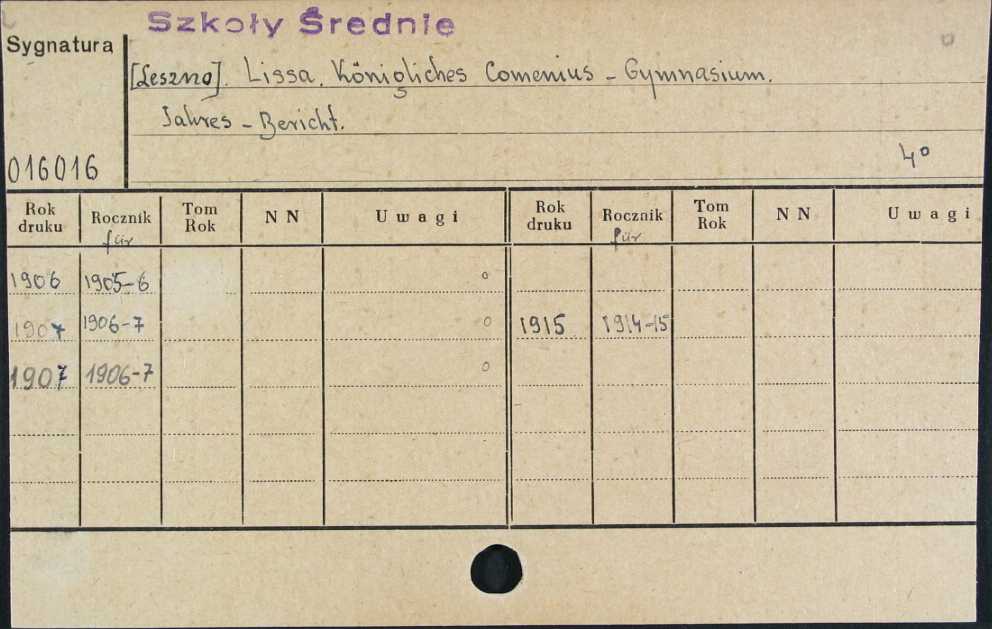 Szkoły Średnie
Sygnatura
[Leszno]. Lissa. Königliches Comenius - Gymnasium.
Jahres - Bericht.
4°
016016
Rok druku Rocznik für Tom Rok NN Uwagi Rok druku Rocznik für Tom Rok NN Uwagi
1906 1905-6 o
1907 1906-7 o 1915 1914-15
1907 1906-7 o